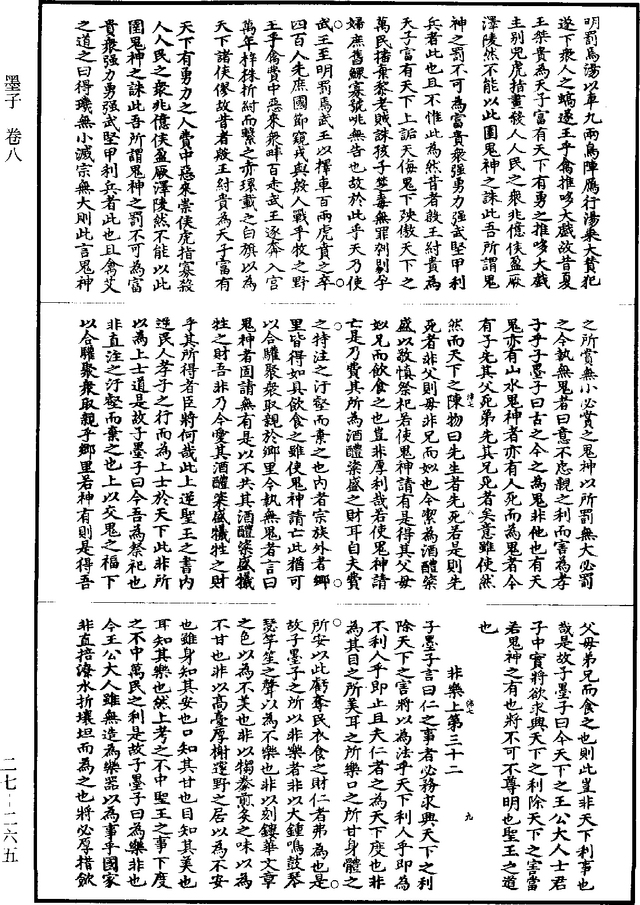 明罰焉湯以車九兩鳥陣鴈行湯乘大贊犯
遂下衆人之螭遂王乎禽推哆大戲故昔夏
王桀貴為天子富有天下有勇之推哆大戲
主別兕虎指畫殺人人民之衆兆億侯盈厥
澤陵然不能以此圉鬼神之誅此吾所謂鬼
神之罰不可為富貴衆强勇力强武堅甲利
兵者此也且不惟此為然昔者殷王紂貴為
天子富有天下上詬天侮鬼下殃傲天下之
萬民播棄黎老賊誅孩子楚毒無罪刳剔孕
婦庶舊鰥寡號咷無告也故於此乎天乃使
武王至明罰焉武王以擇車百兩虎賁之卒
四百人先庶國節窺戎與殷人戰乎牧之野
王乎禽費中惡來衆畔百走武王逐奔入宮
萬年梓株折紂而繫之赤環載之白旗以為
天下諸侯僇故昔者殷王紂貴為天子富有
天下有勇力之人費中惡來崇侯虎指寡殺
人人民之衆兆億侯盈厥澤陵然不能以此
圉鬼神之誅此吾所謂鬼神之罰不可為富
貴衆强力勇强武堅甲利兵者此也且禽艾
之道之曰得璣無小滅宗無大則此言鬼神
之所賞無小必賞之鬼神以所罰無大必罰
之今執無鬼者曰意不忠親之利而害為孝
子乎子墨子曰古之今之為鬼非他也有天
鬼亦有山水鬼神者亦有人死而為鬼者今
有子先其父死弟先其兄死者矣意雖使然
然而天下之陳物曰先生者先死若是則先
死者非父則母非兄而姒也今潔為酒醴粢
盛以敬慎祭祀若使鬼神請有是得其父母
姒兄而飲食之也豈非厚利哉若使鬼神請
亡是乃費其所為酒醴粢盛之財耳自夫費
之特注之汙壑而棄之也內者宗族外者鄉
里皆得如具飲食之雖使鬼神請亡此猶可
以合驩聚衆取親於鄉里今執無鬼者言曰
鬼神者固請無有是以不共其酒醴粢盛犧
牲之財吾非乃今愛其酒醴粢盛犧牲之財
乎其所得者臣將何哉此上逆聖王之書內
逆民人孝子之行而為上士於天下此非所
以為上士道是故子墨子曰今吾為祭祀也
非直注之汙壑而棄之也上以交鬼之福下
以合驩聚衆取親乎鄉里若神有則是得吾
父母弟兄而食之也則此豈非天下利事也
哉是故子墨子曰今天下之王公大人士君
子中實將欲求興天下之利除天下之害當
若鬼神之有也將不可不尊明也聖王之道
也
非樂上第三十二
九
子墨子言曰仁之事者必務求興天下之利
除天下之害將以為法乎天下利人乎即為
不利人乎即止且夫仁者之為天下度也非
為其目之所美耳之所樂口之所甘身體之
所安以此虧奪民衣食之財仁者弗為也是
故子墨子之所以非樂者非以大鍾鳴鼓琴
瑟竽笙之聲以為不樂也非以刻鏤華文章
之色以為不美也非以犓豢煎炙之味以為
不甘也非以高臺厚榭邃野之居以為不安
也雖身知其安也口知其甘也目知其美也
耳知其樂也然上考之不中聖王之事下度
之不中萬民之利是故子墨子曰為樂非也
今王公大人雖無造為樂器以為事乎國家
非直掊潦水折壤坦而為之也將必厚措斂
墨子 卷八
二七–二六五